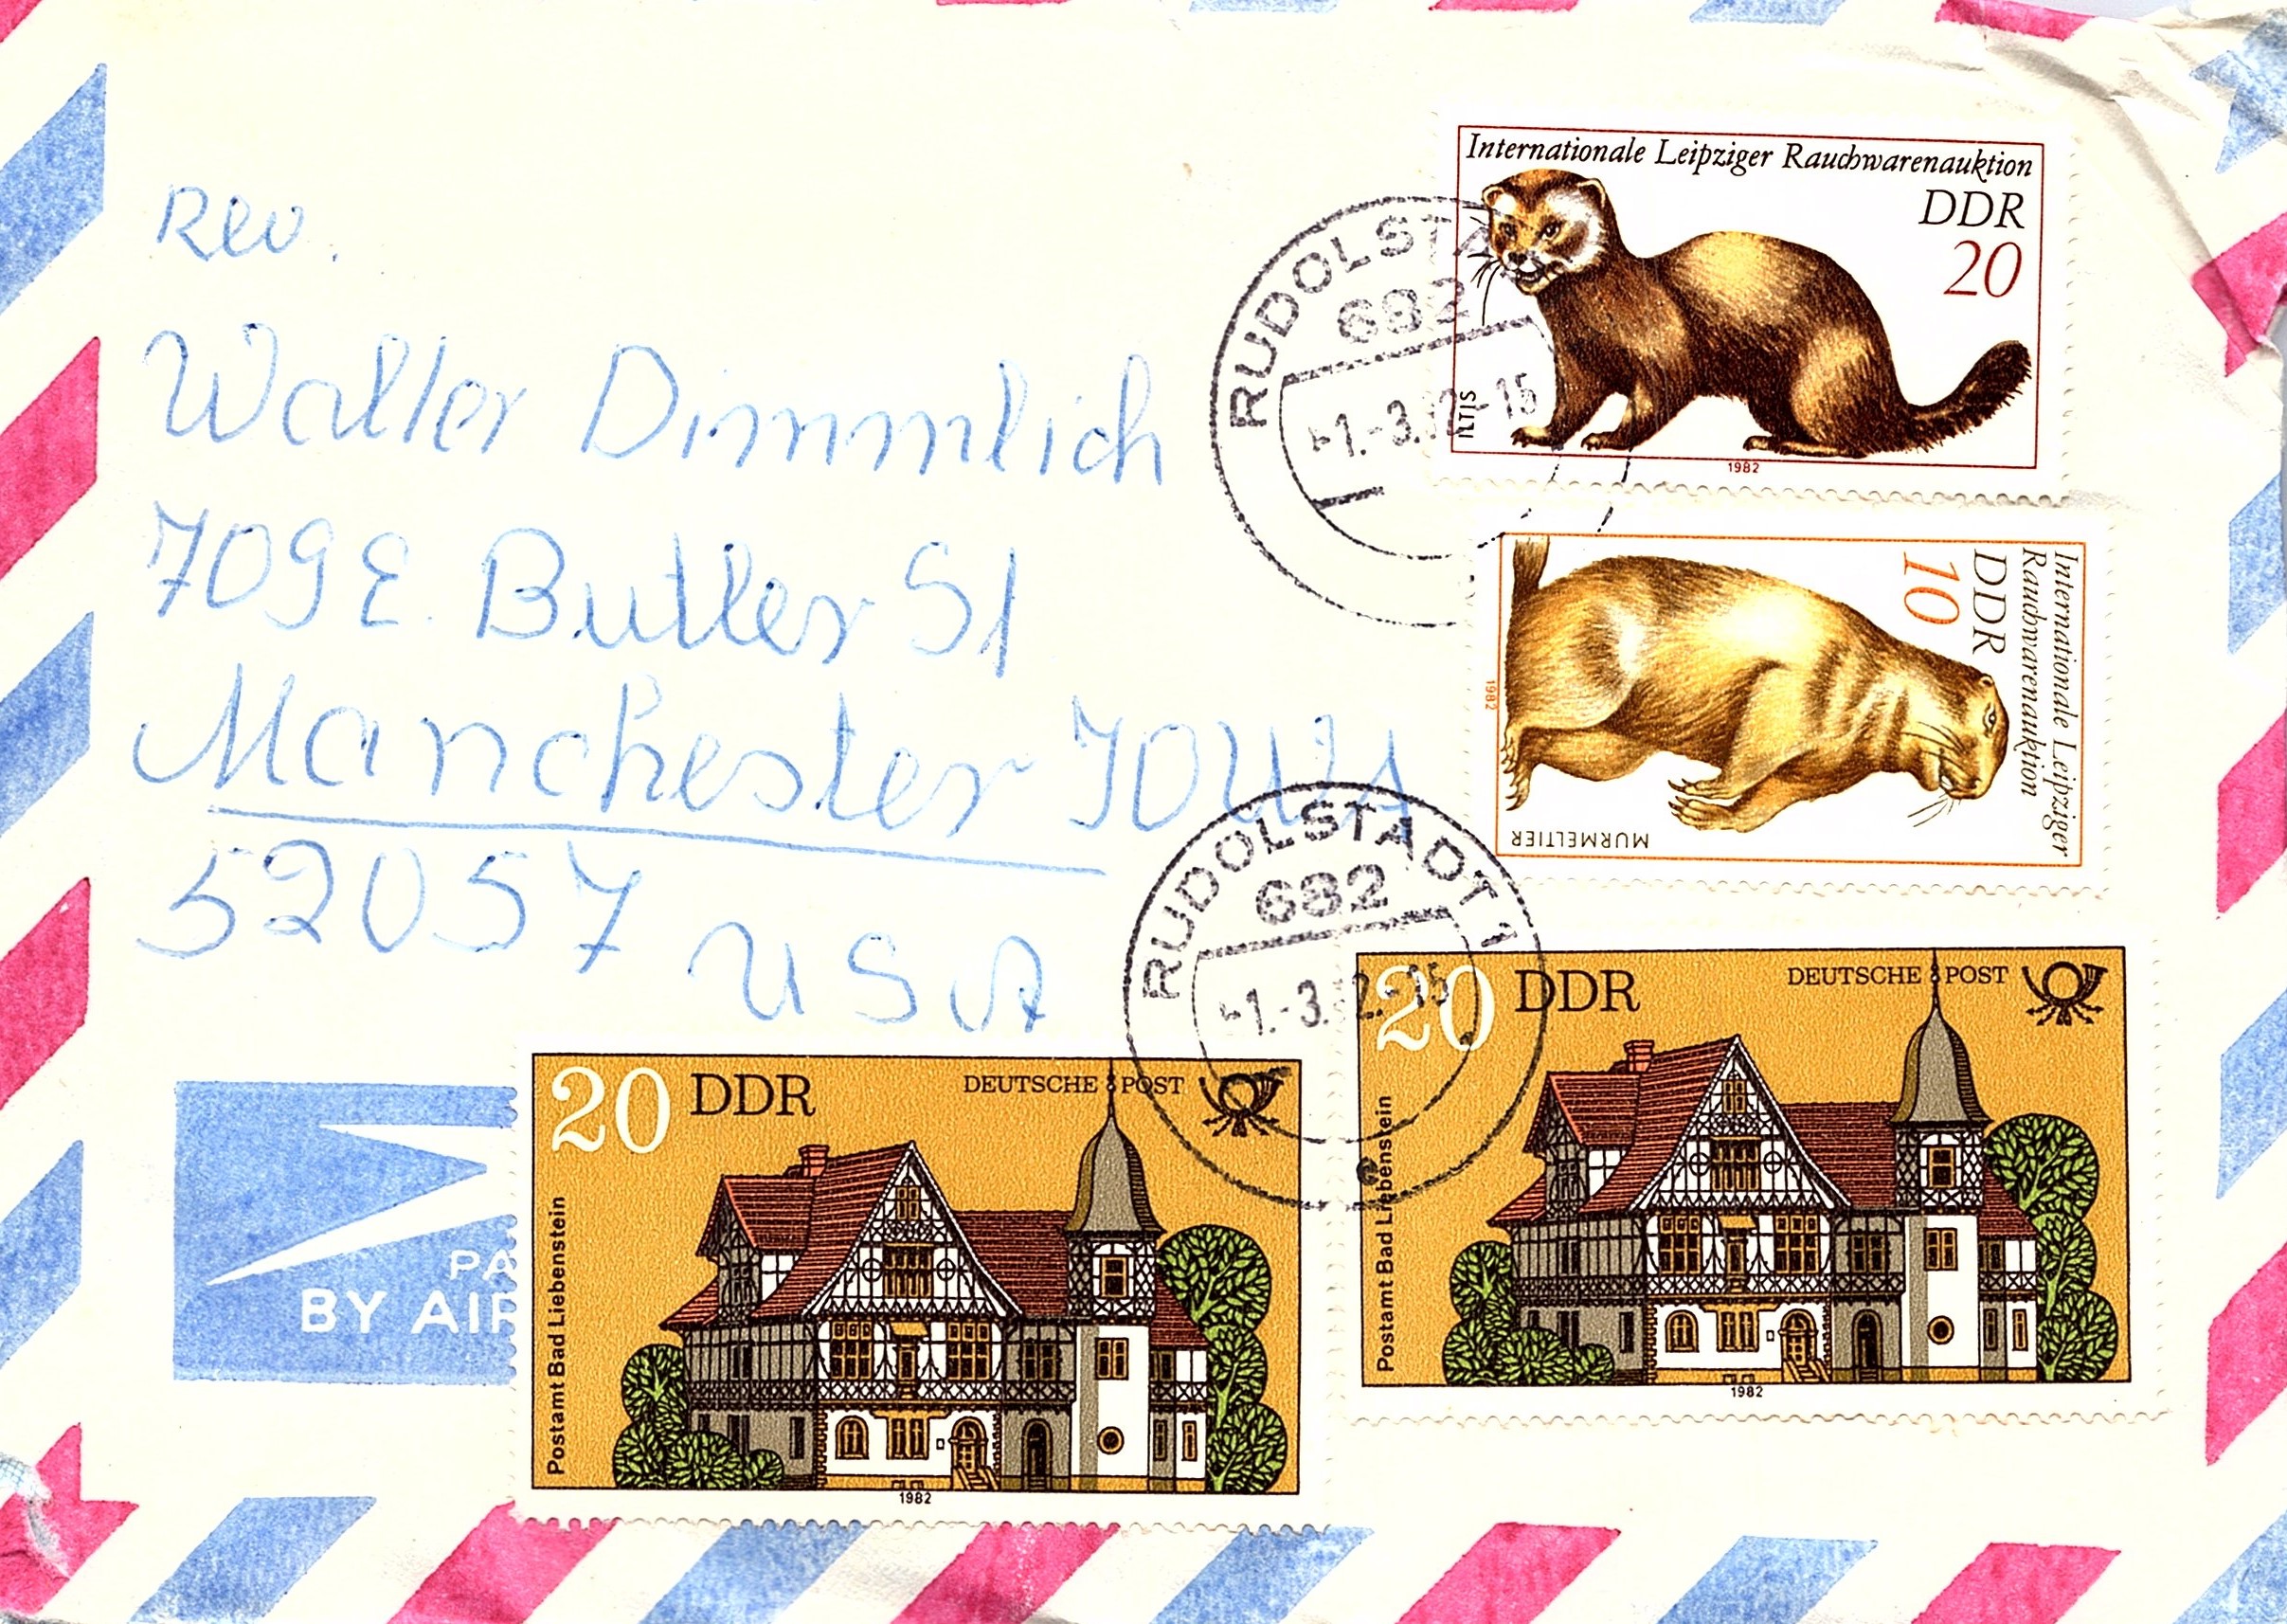 Rev.
Walter Dimmlich
709 E. Butler St
Manchester IOWA
52057 USA
Internationale Leipziger Rauchwarenauktion
DDR
20
ILTIS
1982
RUDOLSTA
682
-1.-3. 2-15
Internationale Leipziger
Rauchwarenauktion
DDR
10
MURMELTIER
1982
RUDOLSTADT 1
682
-1.-3. 2.-15
20 DDR DEUTSCHE POST
Postamt Bad Liebenstein
1982
20 DDR DEUTSCHE POST
Postamt Bad Liebenstein
1982
PA
BY AIR